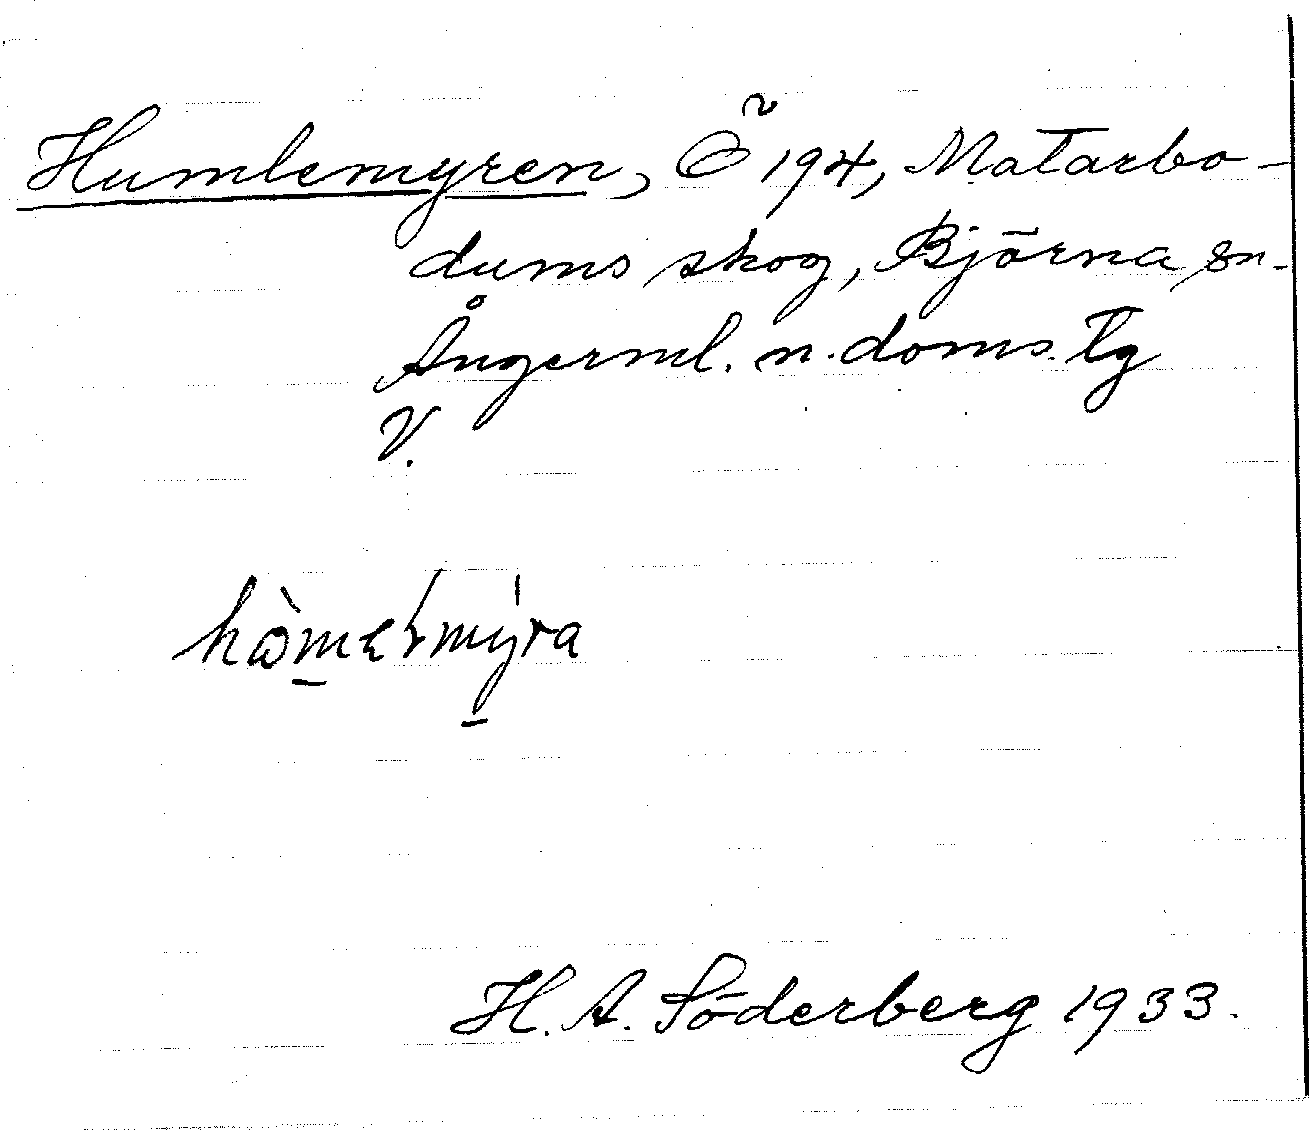 Humlemyren, Ö 194, Matarbo-
dums skog, Björna sn.
Ångerml. n. doms. tg
V.
hòmeɽmýra
H. A. Söderberg 1933.